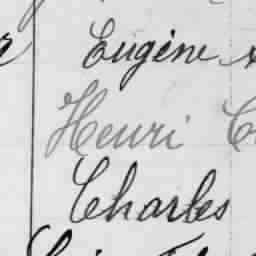 Eugène
Henri
Charles